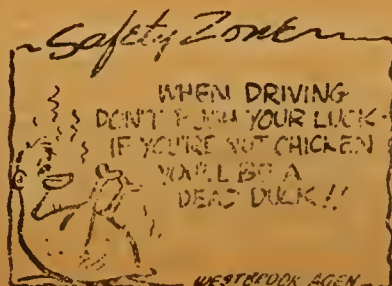 Safety Zone
WHEN DRIVING
DON'T PUSH YOUR LUCK
IF YOU'RE NOT CHICKEN
YOU'LL BE A
DEAD DUCK!!
WESTBROOK AGEN